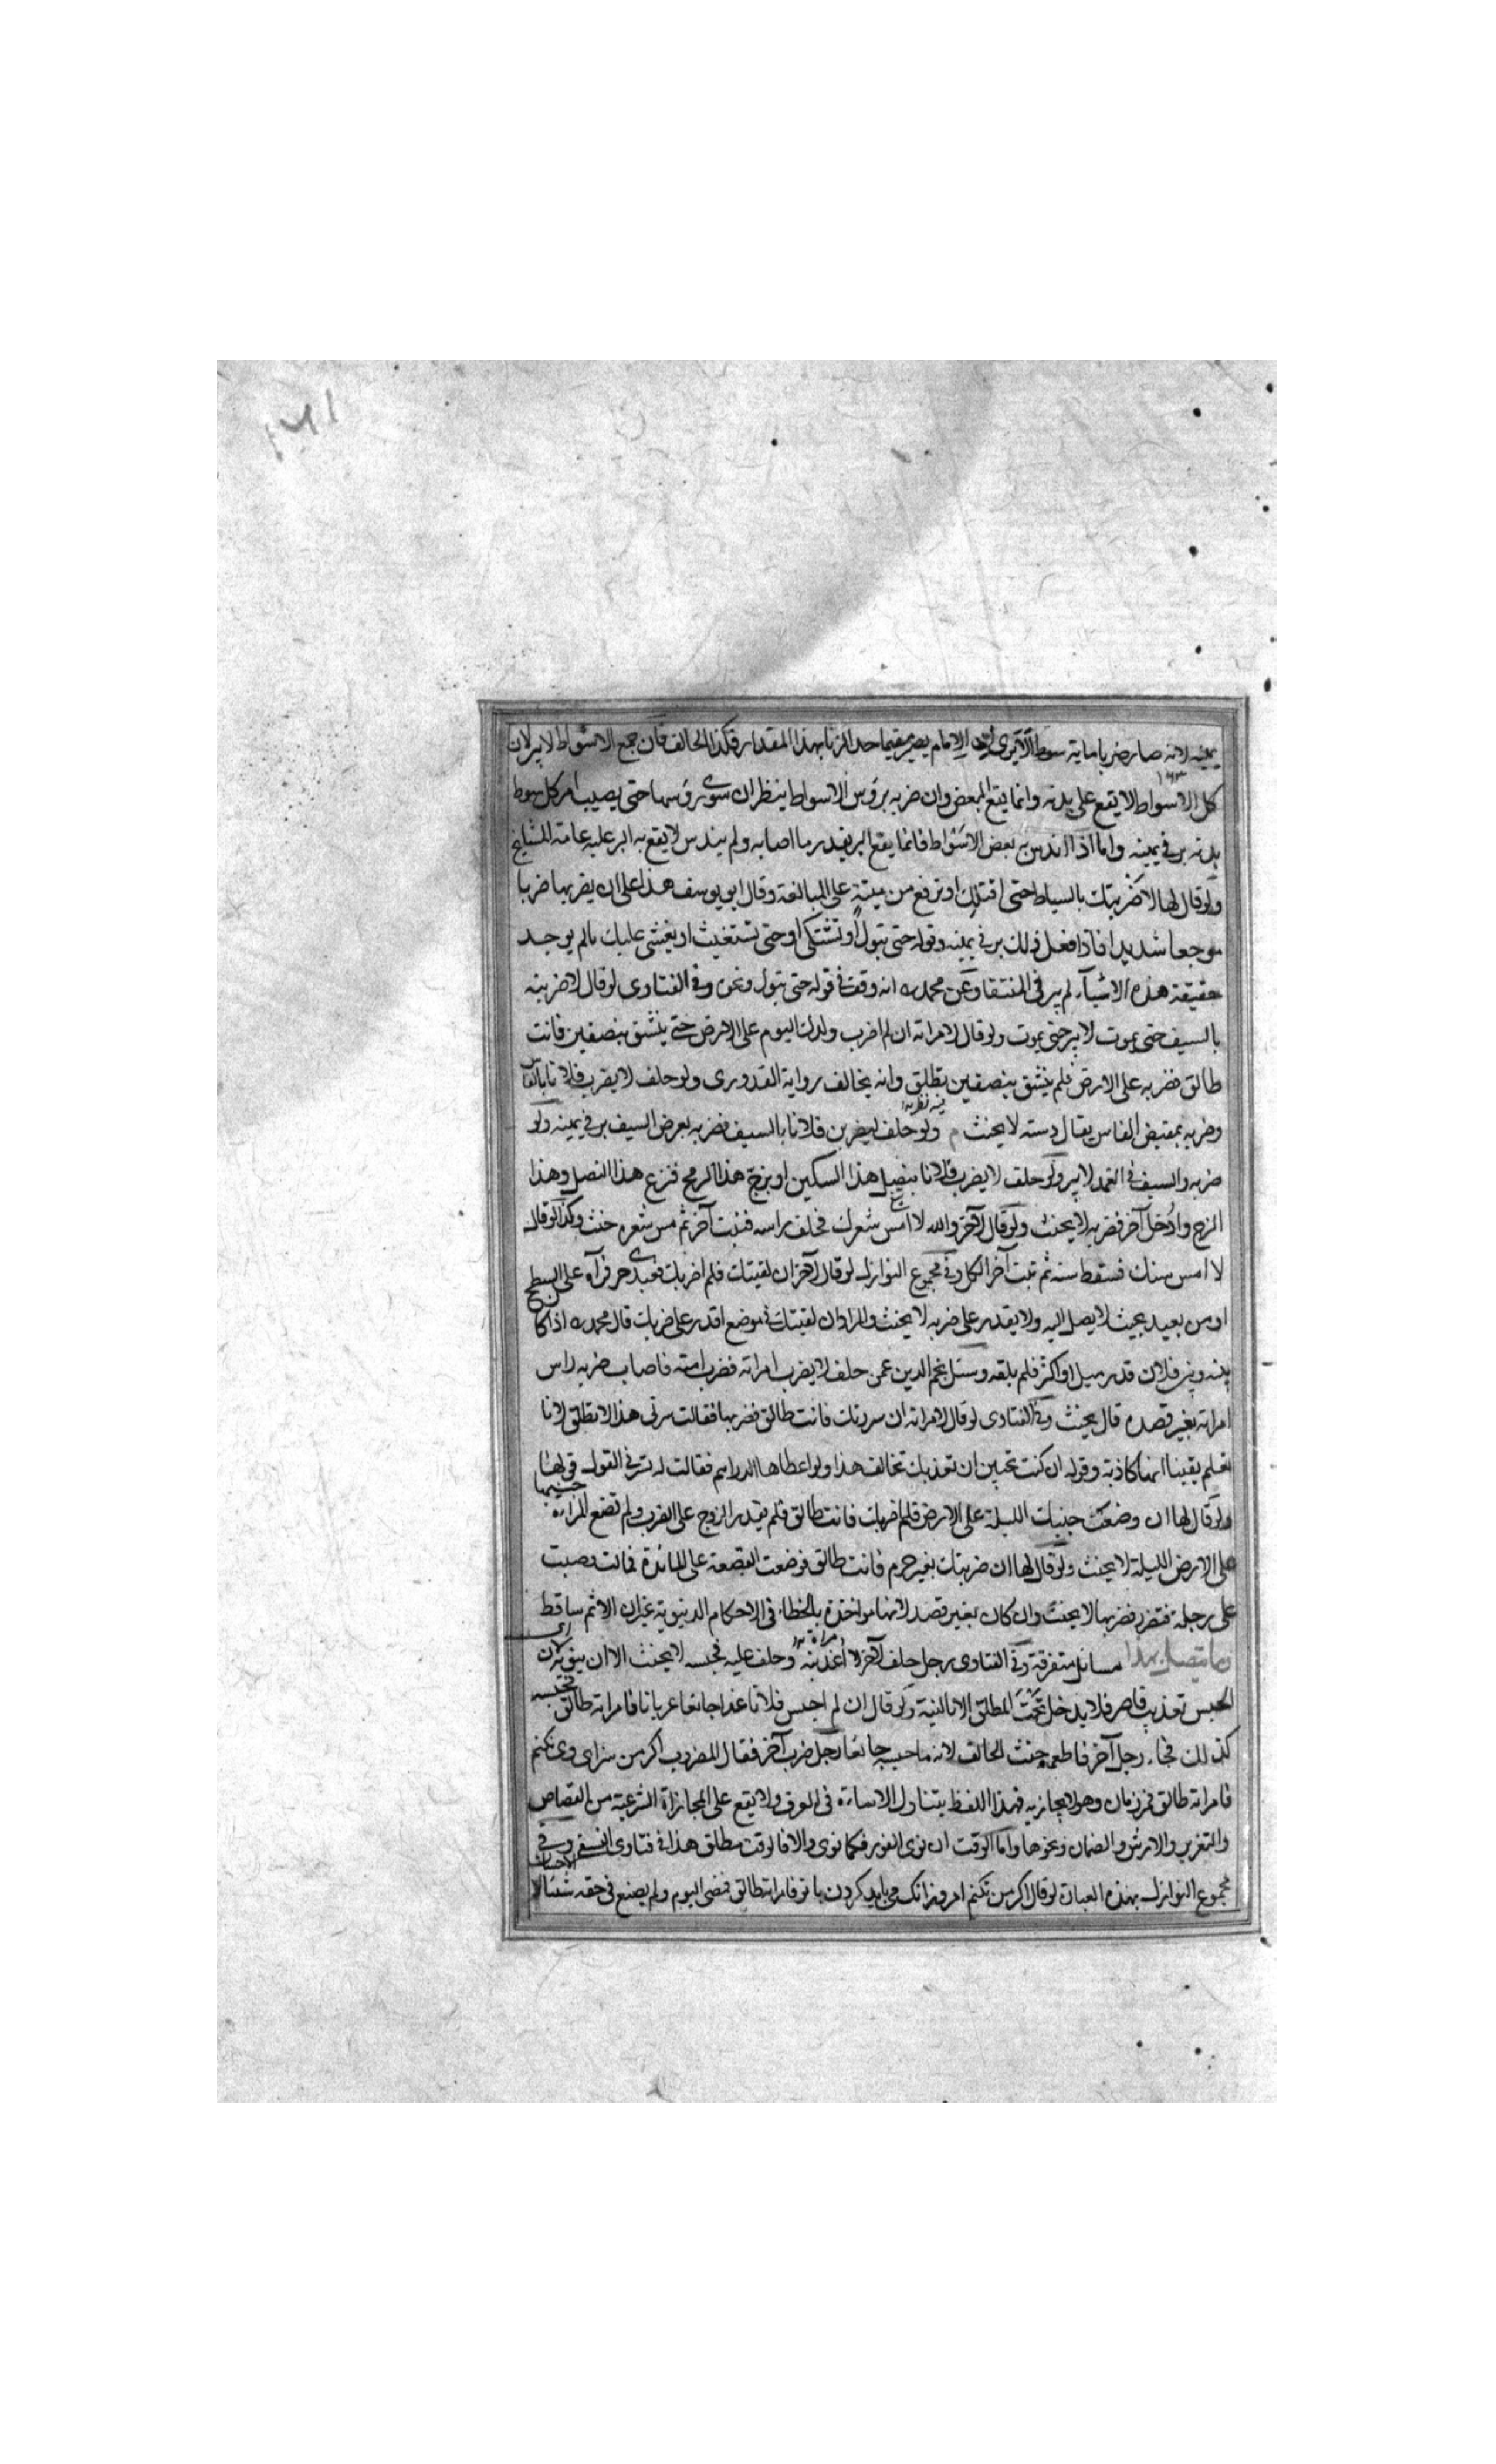 ١٦١
يمينه لانه صار ضربا ماية سوط الا ترى ان الامام يصير مقيما حد الزنا بهذا المقدار فكذا الحالف فان جمع الاسواط لا يبر لان
١٦٣
كل الاسواط لا يقع على بدنه وانما يقع البعض وان ضربه برؤس الاسواط ينظر ان سوى رؤسها حتى يصيب كل سوط
بدنه بر في يمينه واما اذا اندس بعض الاسواط فانما يقع البر بقدر ما اصابه ولم يندس لا يقع به البر عليه عامة المشايخ
ولو قال لها لاضربنك بالسياط حتى اقتلك او ترفع من ميتة على المبالغة وقال ابو يوسف هذا على ان يضربها ضربا
موجعا شديدا فاذا فعل ذلك بر في يمينه وقوله حتى تبول او تشتكى او حتى تستغيث او يغشى عليك مالم يوجد
حقيقة هذه الاشياء لم يبر في المنتقا وعن محمد ره انه وقف في قوله حتى تبول ونحن وفى الفتاوى لو قال لاضربنه
بالسيف حتى يموت لا يبر حتى يموت ولو قال لامراته ان لم اضرب ولدك اليوم على الارض حتى ينشق بنصفين فانت
طالق فضربه على الارض فلم ينشق بنصفين تطلق وانه يخالف رواية القدورى ولو حلف لا يضرب فلانا بالفاس
وضربه بمقبض الفاس يقال دسته لا يحنث م فيه نظر ولو حلف ليضربن فلانا بالسيف فضربه بعرض السيف بر في يمينه ولو
ضربه والسيف في الغمد لا يبر ولو حلف لا يضرب فلانا بنصل هذا السكين او بزج هذا الرمح فنزع هذا النصل وهذا
الزج وادخل آخر فضربه لا يحنث ولو قال لآخر والله لا امس شعرك فحلق راسه فنبت آخر ثم مس شعره حنث وكذا لو قال
لا امس سنك فسقط سنه ثم نبت آخر الكل وفى مجموع النوازل لو قال لآخر ان لقيتك فلم اضربك فعبدى حر فرآه على السطح
او من بعيد بحيث لا يصل اليه ولا يقدر على ضربه لا يحنث والمراد ان لقيتك فى موضع اقدر على ضربك قال محمد ره اذا كان
بينه وبين فلان قدر ميل او اكثر فلم يلقه وسئل نجم الدين عمن حلف لا يضرب امراته فضرب امته فاصاب ضربه راس
امراته بغير قصده قال يحنث وفى الفتاوى لو قال لامراته ان سررتك فانت طالق فضربها فقالت سرنى هذا لا تطلق لانا
نعلم يقينا انها كاذبة وقوله ان كنت تحبين ان تعذبك تخالف هذا ولو اعطاها الدراهم فقالت له تسرنى القول قولها
ولو قال لها ان وضعت جنبك الليلة على الارض فلم اضربك فانت طالق فلم يقدر الزوج على الضرب ولم تضع المراة جنبها
على الارض الليلة لا يحنث ولو قال لها ان ضربتك بغير جرم فانت طالق فوضعت القصعة على المائدة فمالت وصبت
على رجله فتضرر فضربها لا يحنث وان كان بغير قصد لانها مواخذة بالخطاء فى الاحكام الدنيوية غير ان الاثم ساقط
وما يتصل بهذا مسائل متفرقة وفى الفتاوى رجل حلف لآخر لا أعذبنه وحلف عليه فحبسه لا يحنث الا ان ينوى لان
الحبس تعذيب قاصر فلا يدخل تحت المطلق الا بالنية ولو قال ان لم احبس فلانا غدا جائعا عريانا فامراته طالق فحبسه
كذلك فجاء رجل آخر فاطعمه حنث الحالف لانه ما حبسه جائعا رجل ضرب آخر فقال المضروب اكر من سزاى وى نكنم
فامراته طالق فمر زمان وهو لا يجازيه فهذا اللفظ يتناول الاساءة فى العرف ولا يقع على المجازاة الشرعية من القصاص
والتعزير والارش والضمان ونحوها واما الوقت ان نوى الفور فكما نوى والا فالوقت مطلق هذا فى فتاوى النسفى وفى
مجموع النوازل بهذه العبارة لو قال اكر من نكنم امروز انك مى بايد كردن با تو فامراته طالق فمضى اليوم ولم يصنع فى حقه شيئا لا